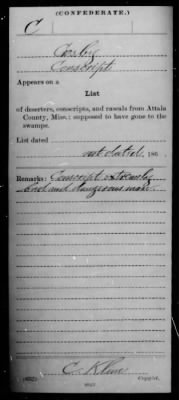 (CONFEDERATE.)
C
Cosby
Conscript
Appears on a
List
of deserters, conscripts, and rascals from Attala
County, Miss.; supposed to have gone to the
swamps.
List dated
not dated, 186 .
Remarks: Conscript
bad and dangerous man.
C. Klein
Copyist.